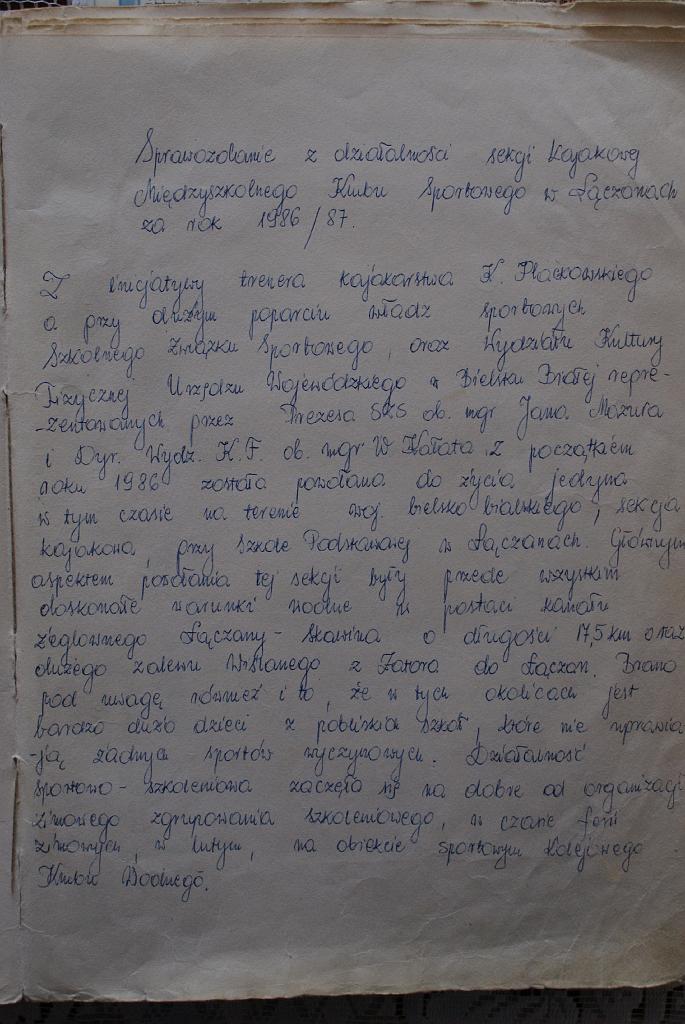 Sprawozdanie z działalności sekcji kajakowej
Międzyszkolnego Klubu Sportowego w Łączanach
za rok 1986/87.
Z inicjatywy trenera kajakarstwa K. Płaćkowskiego
a przy dużym poparciu władz sportowych
Szkolnego Związku Sportowego, oraz Wydziału Kultury
Fizycznej Urzędu Wojewódzkiego w Bielsku Białej repre-
-zentowanych przez Prezesa SZS ob. mgr Jana Mazura
i Dyr. Wydz. K.F. ob. mgr W Kałata, z początkiem
roku 1986 została powołana do życia jedyna
w tym czasie na terenie woj. bielsko bialskiego, sekcja
kajakowa, przy Szkole Podstawowej w Łączanach. Głównym
aspektem powołania tej sekcji były przede wszystkim
doskonałe warunki wodne w postaci kanału
żeglownego Łączany - Skawina o długości 17,5 km oraz
dużego zalewu Wiślanego z Zatora do Łączan. Brano
pod uwagę również i to, że w tych okolicach jest
bardzo dużo dzieci z pobliskich szkół, które nie uprawia-
-ją żadnych sportów wyczynowych. Działalność
sportowo - szkoleniowa zaczęła się na dobre od organizacji
zimowego zgrupowania szkoleniowego, w czasie ferii
zimowych, w lutym, na obiekcie sportowym Kolejowego
Klubu Wodnego.